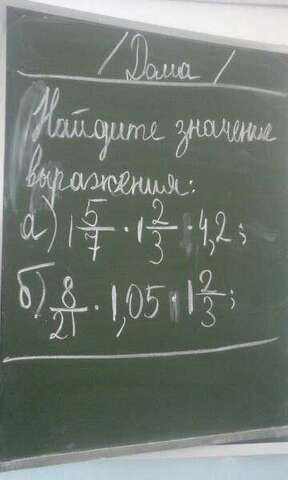 / Дома /
Найдите значение
выражения:
а) 1 5/7 · 1 2/3 · 4,2;
б) 8/21 · 1,05 · 1 2/3;